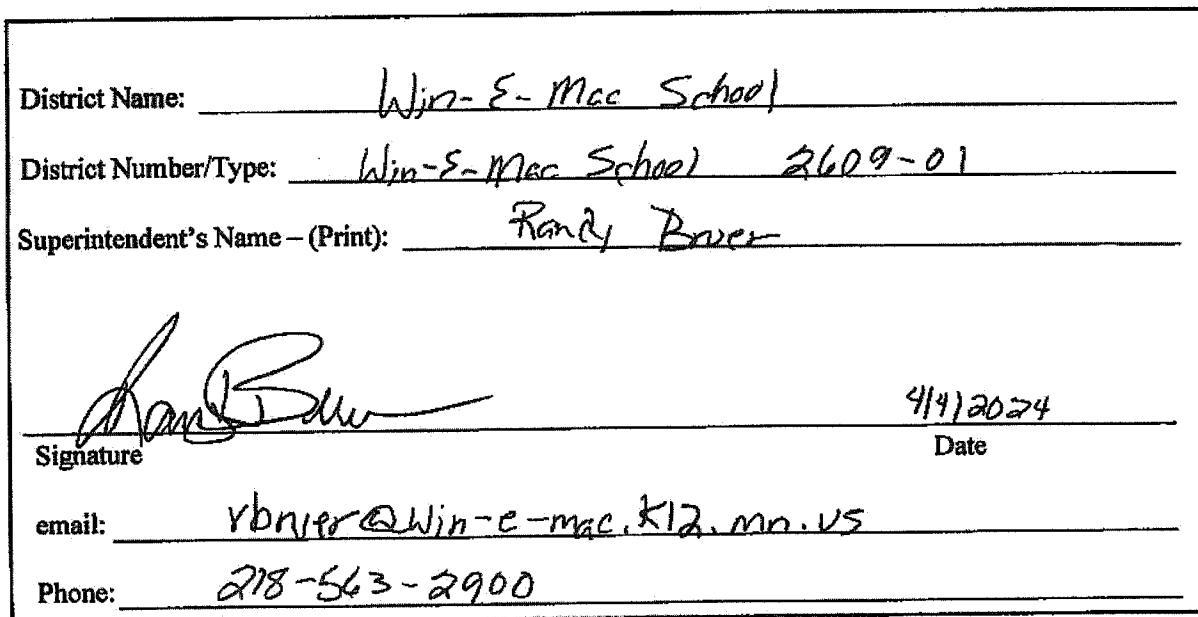 District Name: Win-E-Mac School
District Number/Type: Win-E-Mac School 2609-01
Superintendent's Name – (Print): Randy Bruer
4/4/2024
Signature Date
email: rbruer@win-e-mac.k12.mn.us
Phone: 218-563-2900